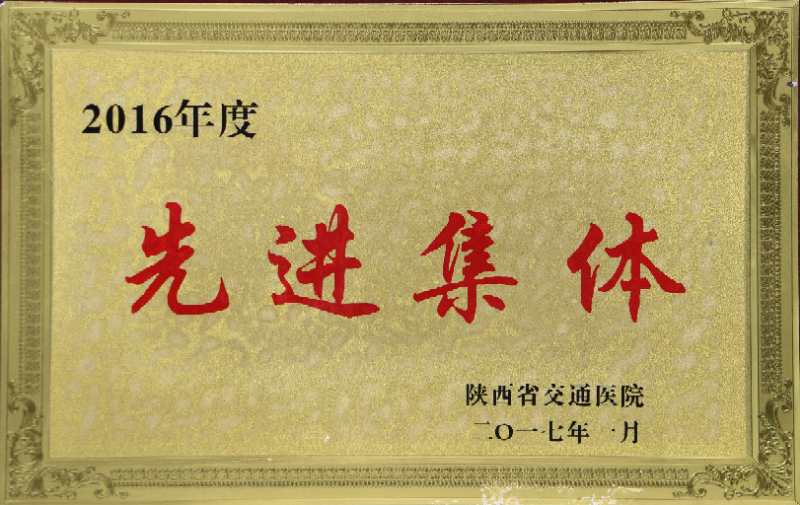 2016年度
先进集体
陕西省交通医院
二〇一七年一月